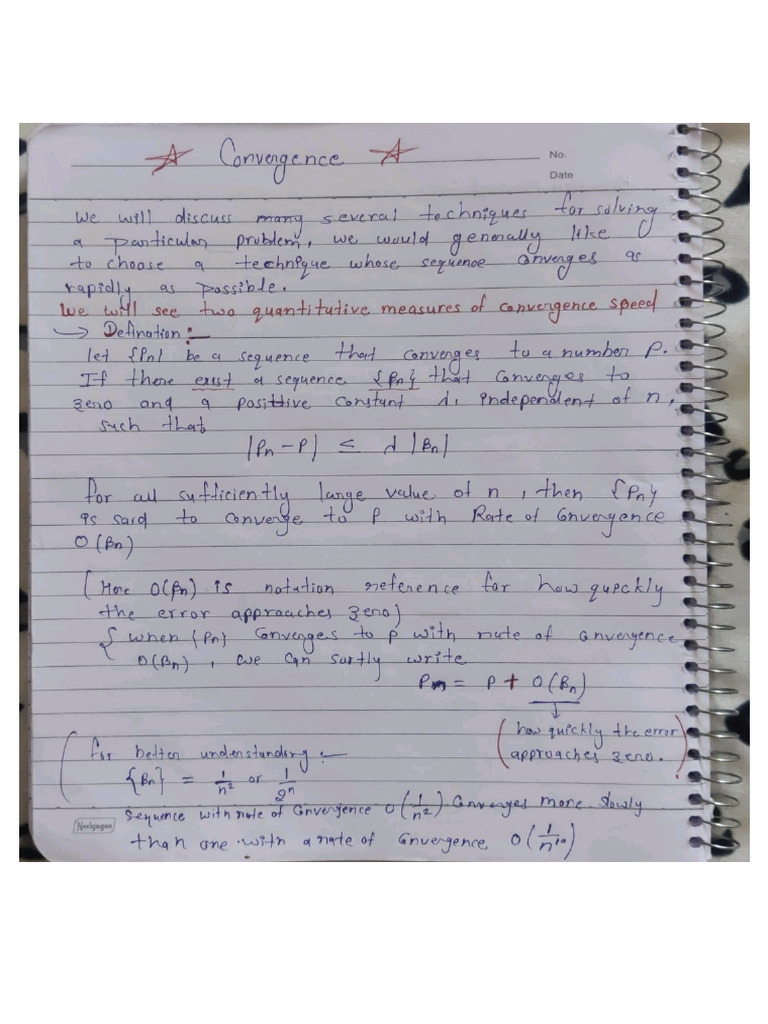 ☆ Convergence ☆
No.
Date
We will discuss many several techniques for solving
a particular problem, we would generally like
to choose a technique whose sequence converges as
rapidly as possible.
We will see two quantitutive measures of convergence speed
→ Defination:-
let {Pn} be a sequence that converges to a number P.
If there exist a sequence {βn} that converges to
zero and a positive constant λ, independent of n,
such that
|Pn - P| ≤ λ |Bn|
for all sufficiently large value of n, then {Pn}
is said to converge to P with Rate of Convergence
O(Bn)
(Here O(βn) is notation reference for how quickly
the error approaches zero)
{ when {Pn} Converges to P with rate of Convergence
O(Bn), we can sortly write
Pn = P + O(Bn)
↓
(how quickly the error
approaches zero.)
for better understanding :-
{Bn} = 1/n² or 1/2ⁿ
Sequence with rate of Convergence O(1/n²) Converges more slowly
than one with a rate of Convergence O(1/n¹⁰)
Neelgagan